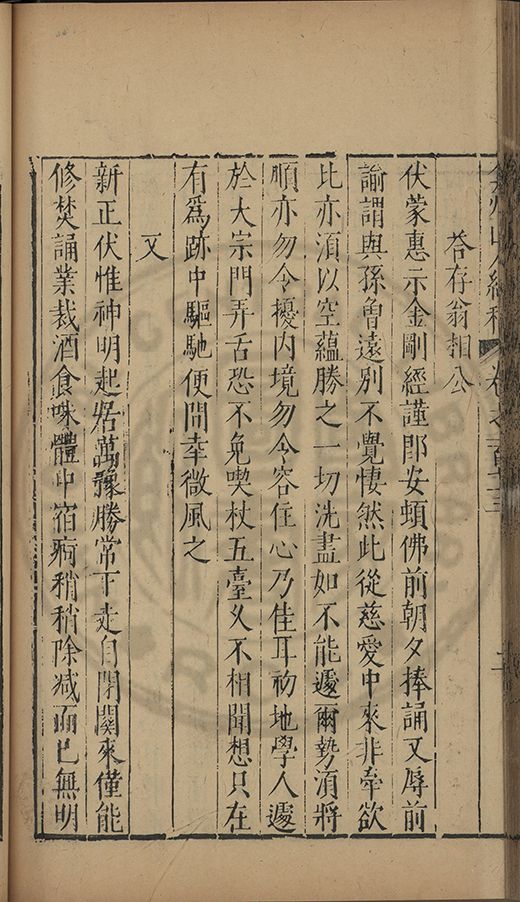 弇州山人續稿 卷之一百七十三 二
答存翁相公
伏蒙惠示金剛經謹卽安頓佛前朝夕捧誦又辱前
諭謂與孫魯遠別不覺悽然此從慈愛中來非牽欲
比亦湏以空蘊勝之一切洗盡如不能遽爾勢湏將
順亦勿令擾內境勿令容住心乃佳耳初地學人遽
於大宗門弄舌恐不免喫杖五臺久不相聞想只在
有爲跡中驅馳便問幸微風之
又
新正伏惟神明起居萬豫勝常下走自閉關來僅能
修焚誦業裁酒食味體中宿痾稍稍除减而已無明